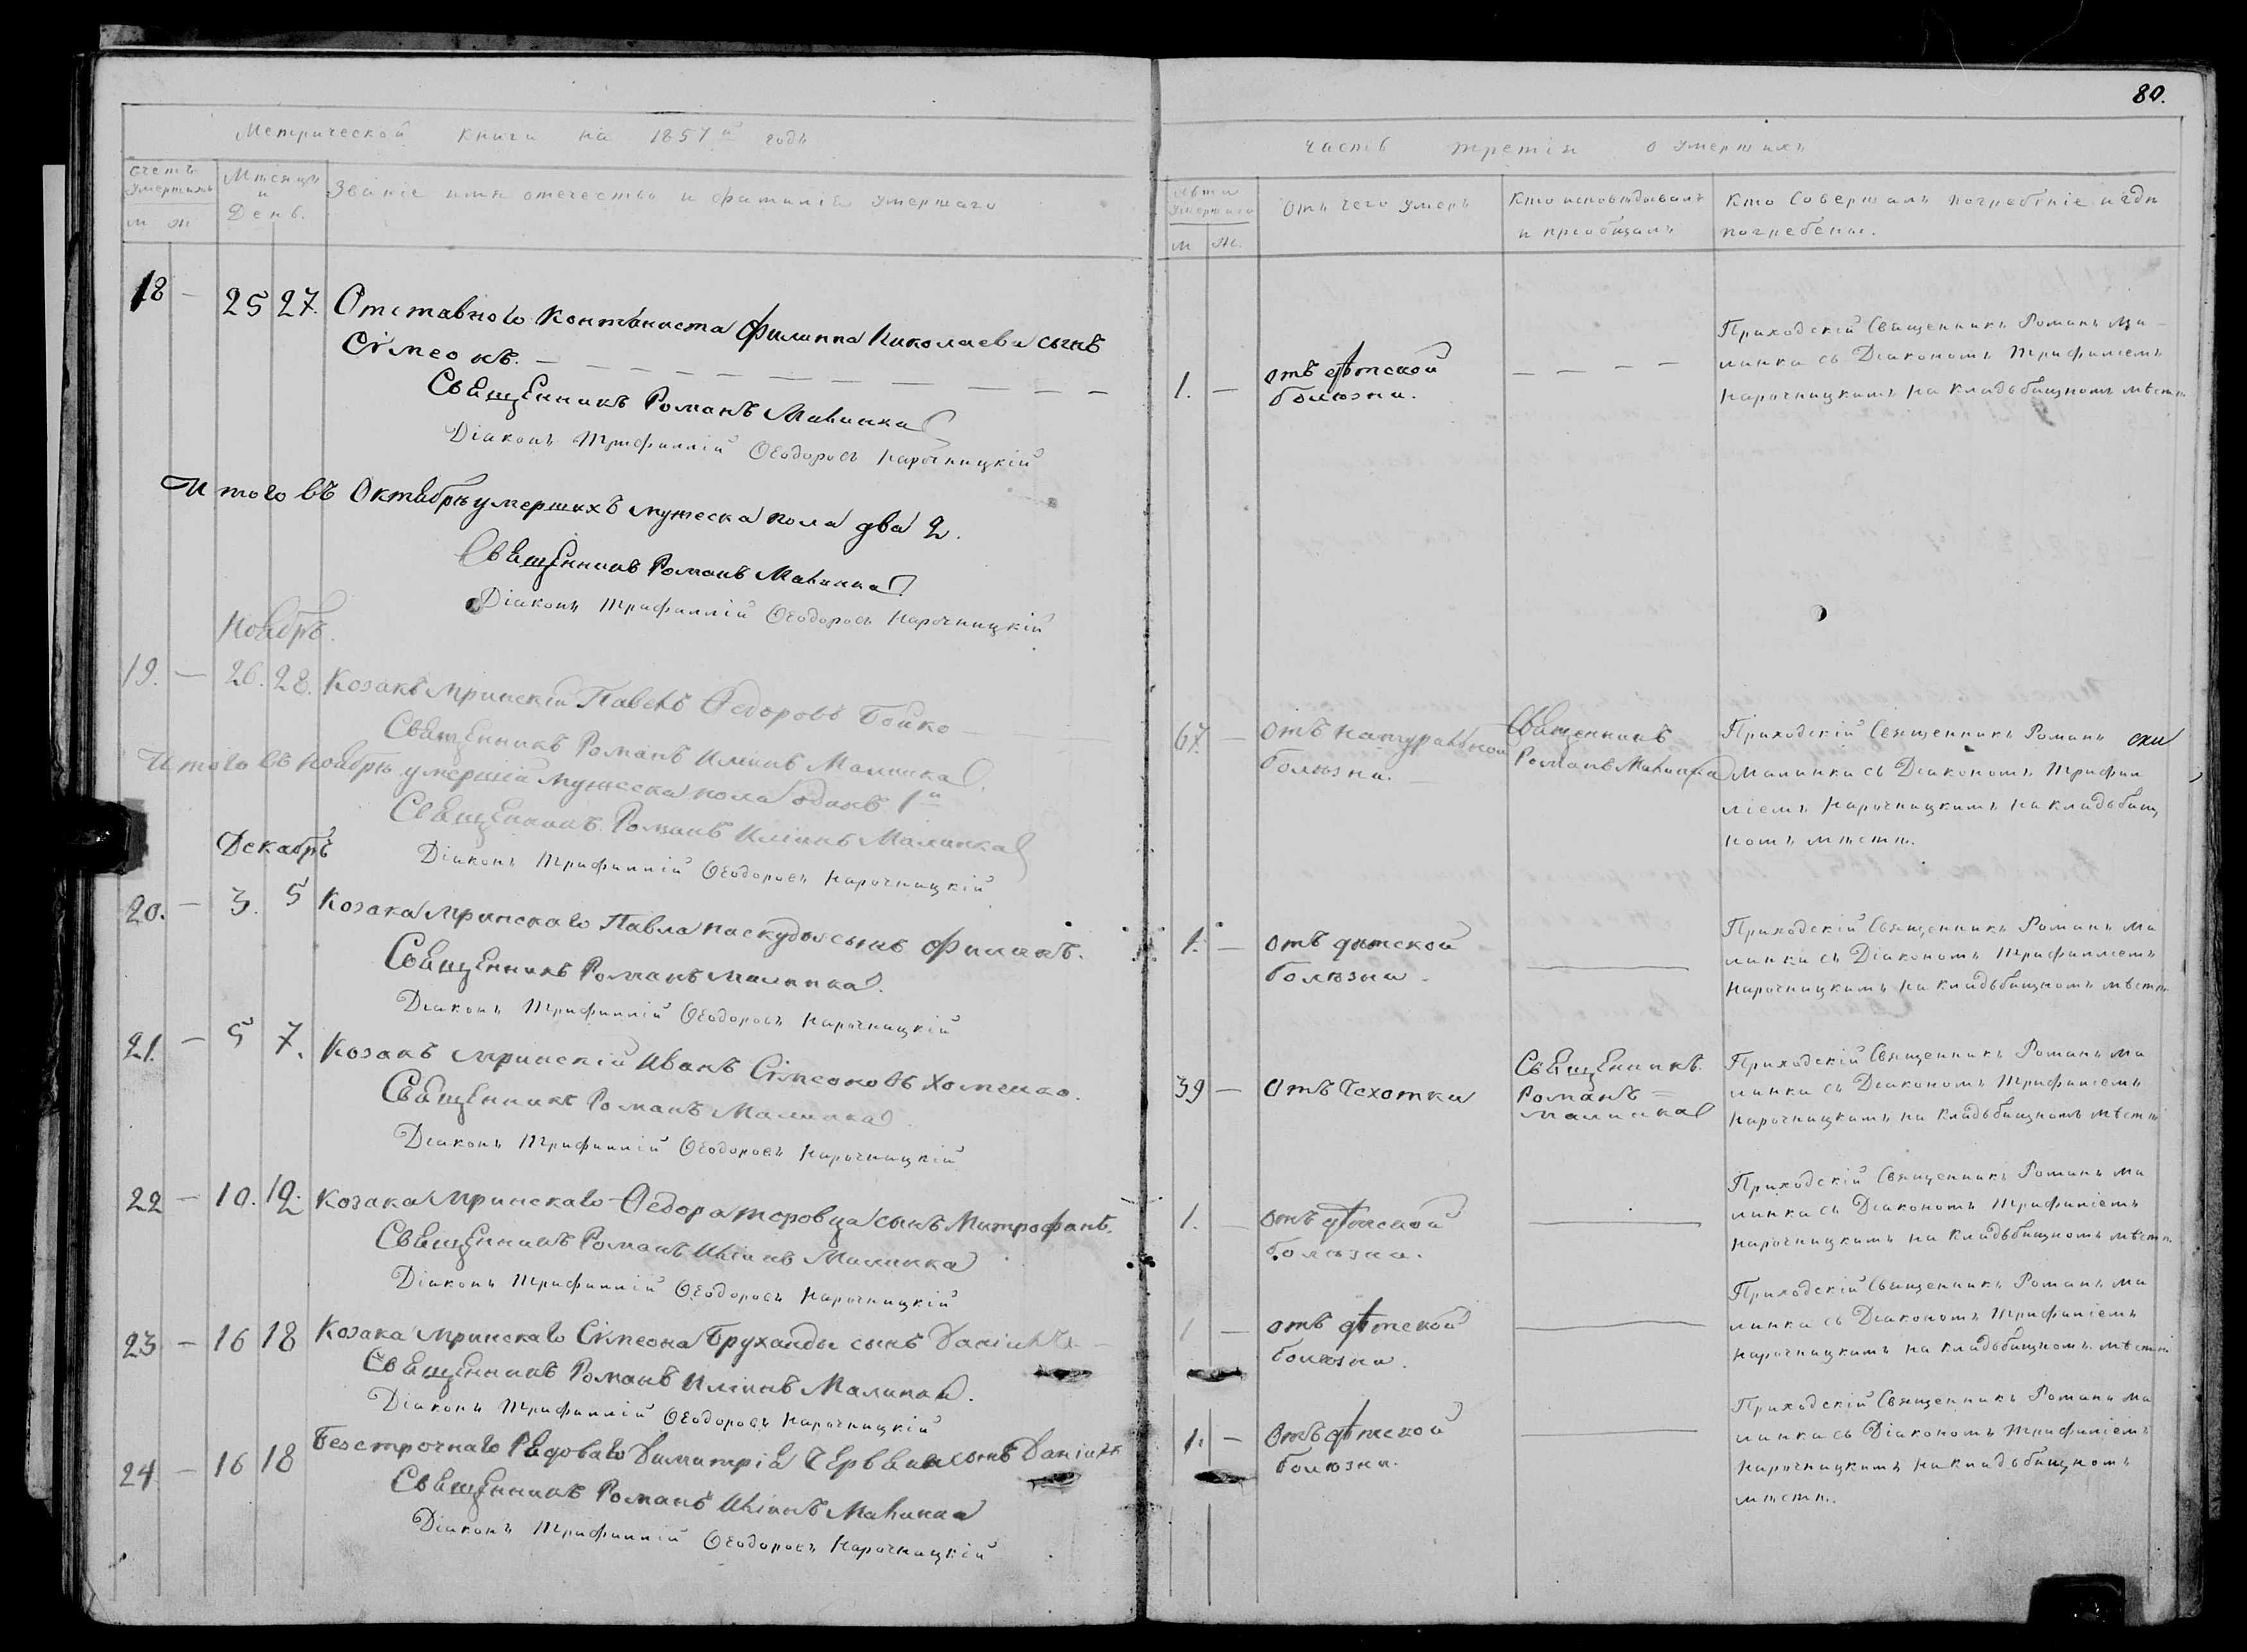 80.
Метрической книги на 1857й годъ
Часть третія о умершихъ
Счетъ умершихъ
Мѣсяцъ и День.
Званіе имя отечество и фамилія умершаго
м ж
Лѣта умершаго
Отъ чего умеръ
Кто исповѣдывалъ и пріобщалъ
Кто Совершалъ погребеніе и гдѣ погребены.
м ж.
18 — 25 27. Отставного Кантониста Филиппа Николаева сынъ
Сімеонъ. — — — — — — — — —
Священникъ Романъ Малинка
Діаконъ Трифиллій Ѳеодоровъ Нарочницкій
1. —
отъ дѣтской
болѣзни.
— — — —
Приходскій Священникъ Романъ Ма-
линка съ Діакономъ Трифиліемъ
Нарочницкимъ на кладьбищномъ мѣстѣ
Итого въ Октябрѣ умершихъ мужеска пола два 2.
Священникъ Романъ Малинка
Діаконъ Трифиллій Ѳеодоровъ Нарочницкій
Ноябрь.
19. — 26. 28. Козакъ Мринскій Павелъ Ѳедоровъ Бойко —
Священникъ Романъ Иліинъ Малинка
67. —
Отъ натуральной
болѣзни. —
Священникъ
Романъ Малинка
Приходскій Священникъ Романъ
Малинка съ Діакономъ Трифил
ліемъ Нарочницкимъ на кладьбищ
номъ мѣстѣ.
Итого въ Ноябрѣ умершій мужеска пола одинъ 1й
Священникъ Романъ Иліинъ Малинка
Діаконъ Трифиллій Ѳеодоровъ Нарочницкій
Декабрь
20. — 3. 5 Козака Мринскаго Павла Паскуды сынъ Филипъ.
Священникъ Романъ Малинка.
Діаконъ Трифиллій Ѳеодоровъ Нарочницкій
1. —
отъ дѣтской
болѣзни.
Приходскій Священникъ Романъ Ма
линка съ Діакономъ Трифилліемъ
Нарочницкимъ на кладьбищномъ мѣстѣ
21. — 5 7. Козакъ Мринскій Иванъ Сімеоновъ Хоменко.
Священникъ Романъ Малинка
Діаконъ Трифиллій Ѳеодоровъ Нарочницкій
39 —
Отъ Чехотки
Священникъ
Романъ =
Малинка
Приходскій Священникъ Романъ Ма
линка съ Діакономъ Трифиліемъ
Нарочницкимъ на кладьбищномъ мѣстѣ
22 — 10. 12. Козака Мринскаго Ѳедора Жеровца сынъ Митрофанъ.
Священникъ Романъ Иліинъ Малинка
Діаконъ Трифиллій Ѳеодоровъ Нарочницкій
1. —
отъ дѣтской
болѣзни.
Приходскій Священникъ Романъ Ма
линка съ Діакономъ Трифиліемъ
Нарочницкимъ на кладьбищномъ мѣстѣ.
23 — 16 18 Козака Мринскаго Сімеона Бруханды сынъ Даніилъ —
Священникъ Романъ Иліинъ Малинка.
Діаконъ Трифиллій Ѳеодоровъ Нарочницкій
1 —
отъ дѣтской
болѣзни.
Приходскій Священникъ Романъ Ма
линка съ Діакономъ Трифиліемъ
Нарочницкимъ на кладьбищномъ мѣстѣ
24 — 16 18 Безстрочнаго Рядоваго Димитрія сынъ Даніилъ
Священникъ Романъ Иліинъ Малинка
Діаконъ Трифиллій Ѳеодоровъ Нарочницкій
1. —
Отъ дѣтской
болѣзни.
Приходскій Священникъ Романъ Ма
линка съ Діакономъ Трифиліемъ
Нарочницкимъ на кладьбищномъ
мѣстѣ.